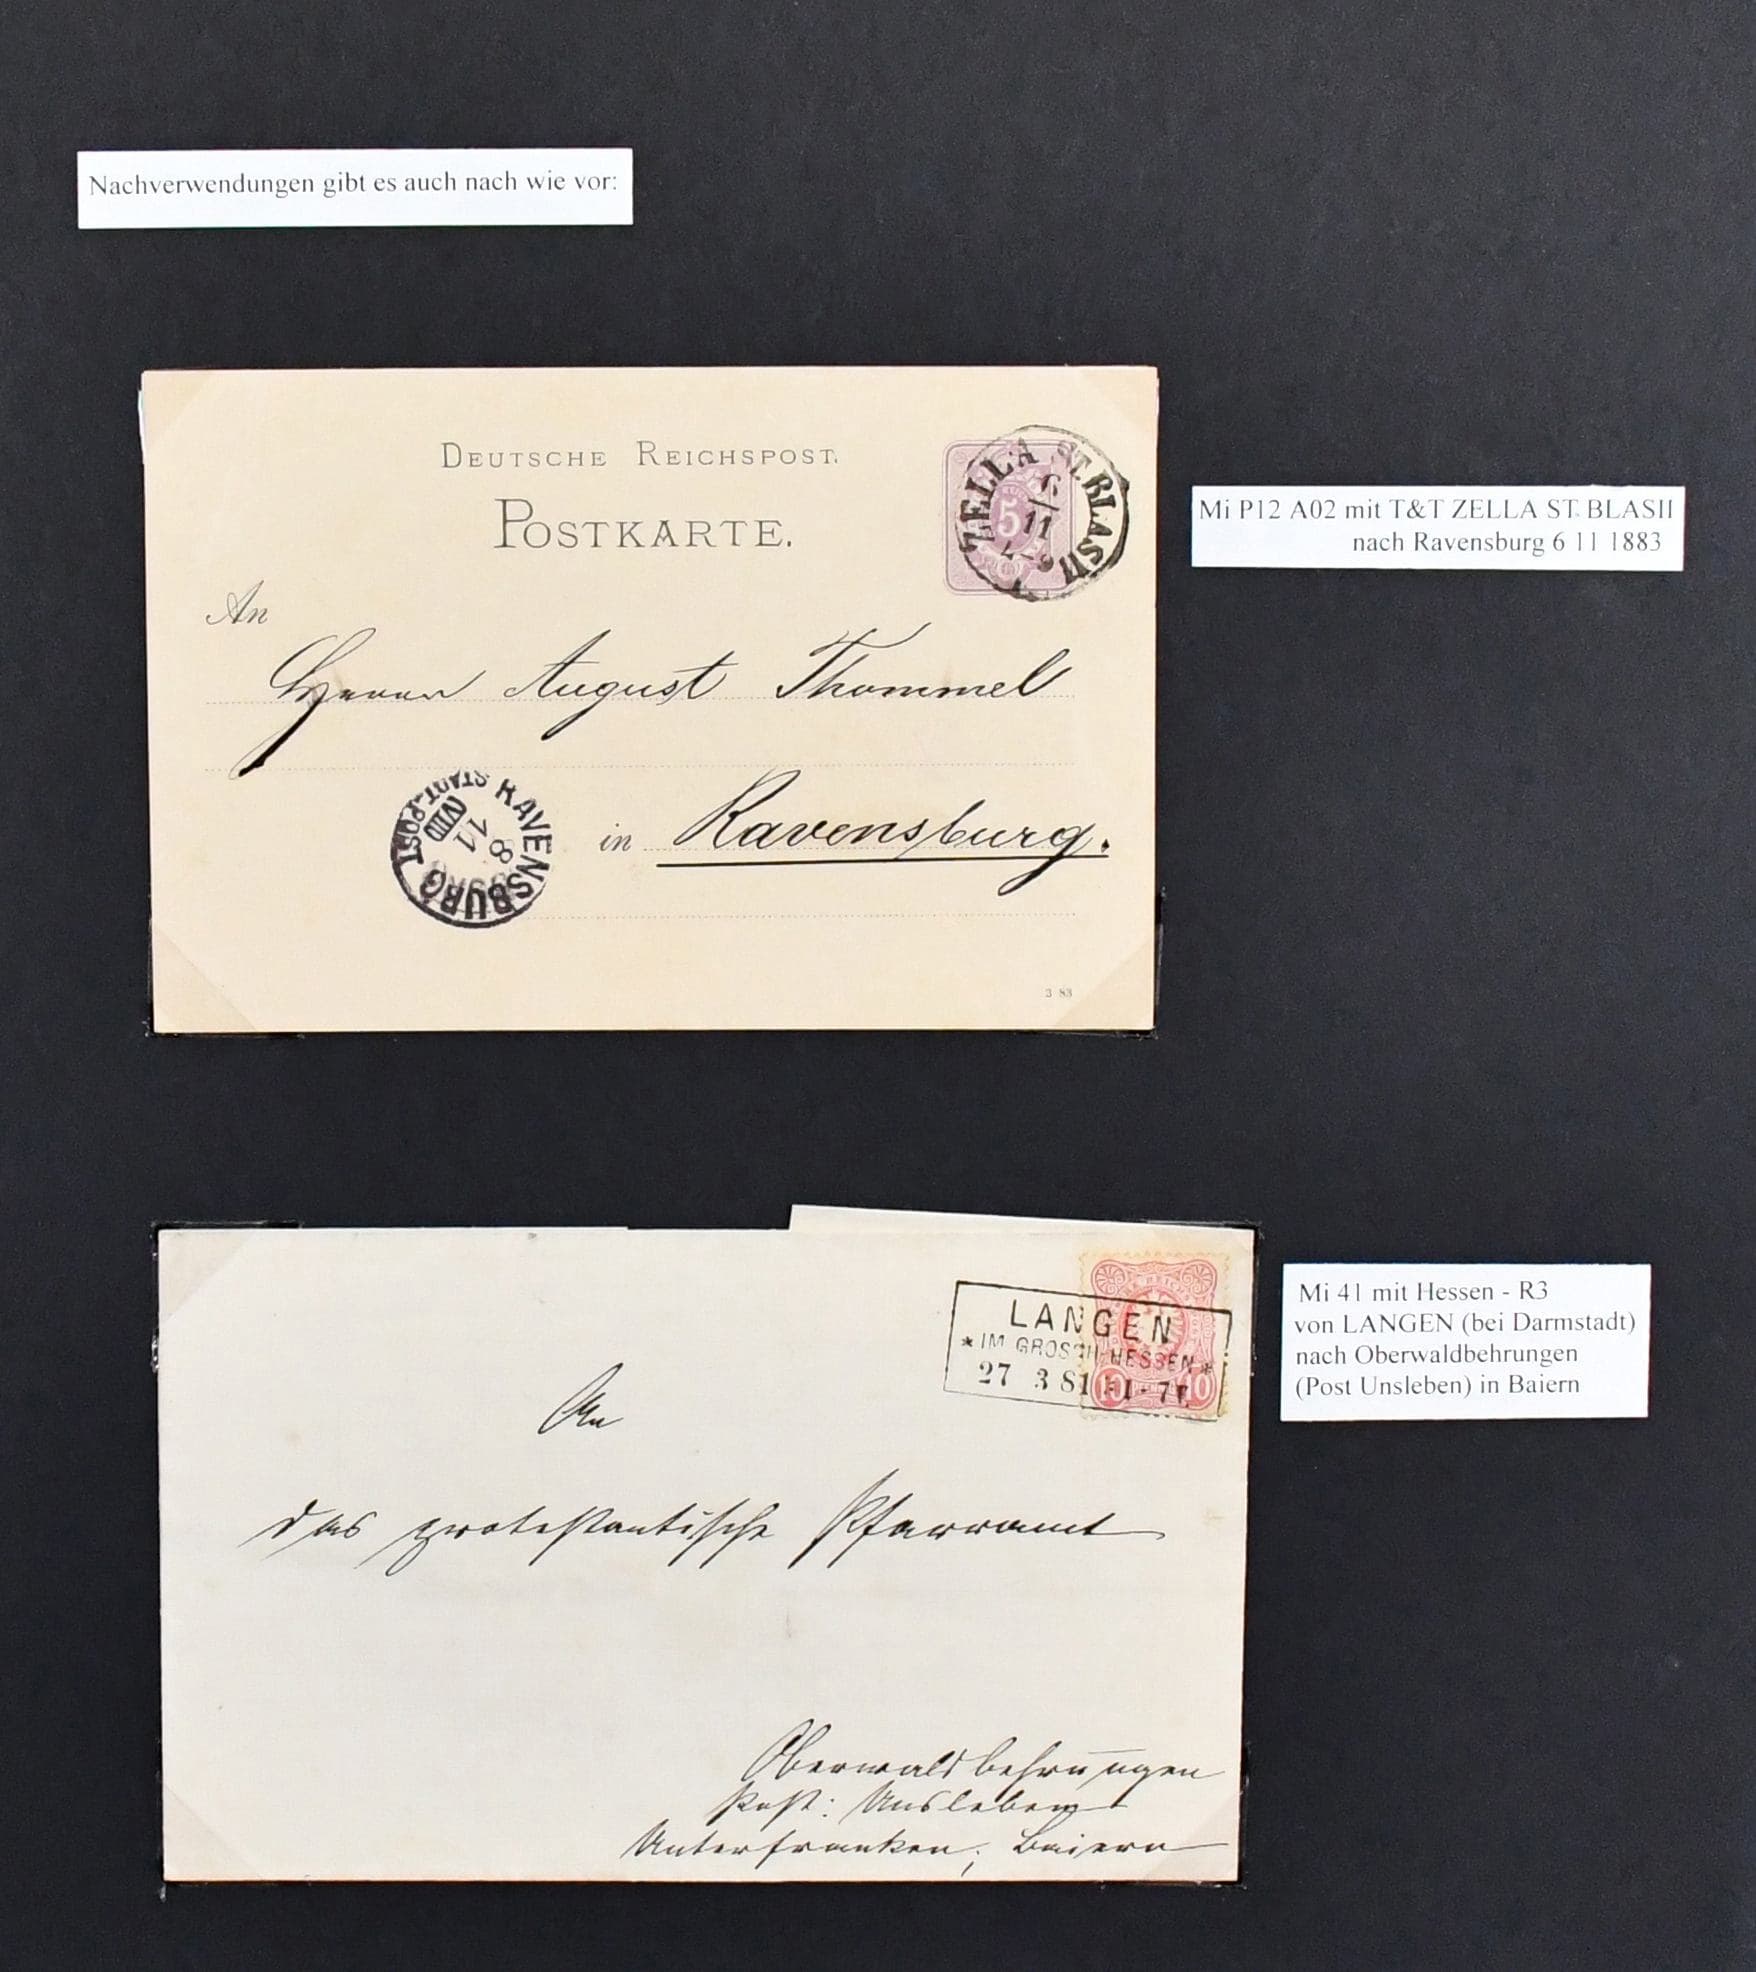 Nachverwendungen gibt es auch nach wie vor:
DEUTSCHE REICHSPOST.
POSTKARTE.
ZELLA ST. BLASII
6/11
5
Mi P12 A02 mit T&T ZELLA ST. BLASII
nach Ravensburg 6 11 1883
An
Herrn August Thommel
in Ravensburg.
RAVENSBURG STADT-POST
8
11
VIII
3 83
LANGEN
* IM GROSSH. HESSEN *
27 3 81
10 10
Mi 41 mit Hessen - R3
von LANGEN (bei Darmstadt)
nach Oberwaldbehrungen
(Post Unsleben) in Baiern
An
das protestantische Pfarramt
Oberwaldbehrungen
Post: Unsleben
Unterfranken; Baiern